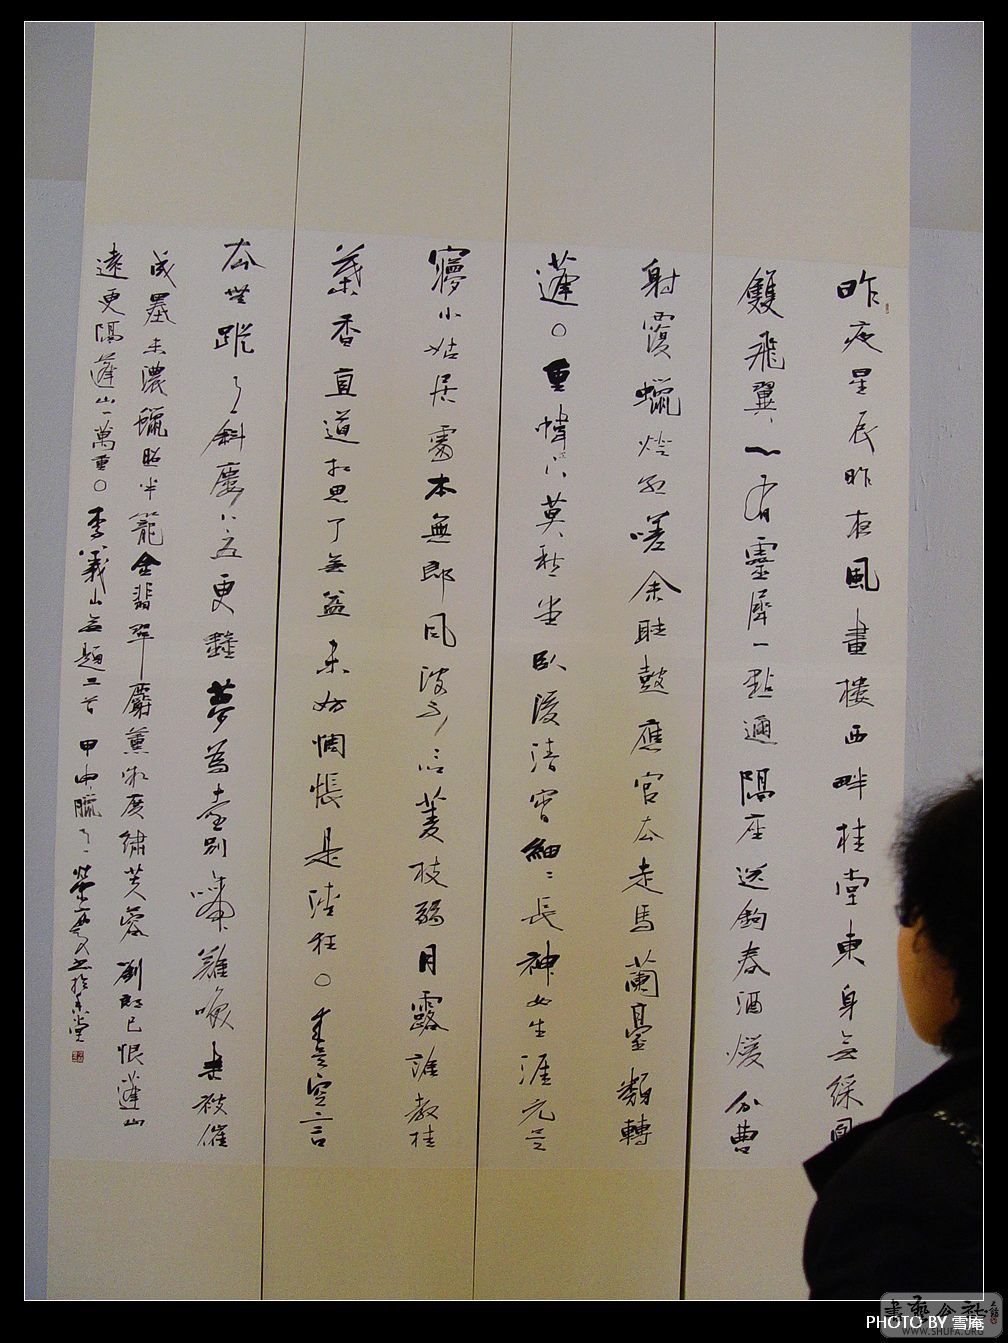 昨夜星辰昨夜風畫樓西畔桂堂東身無綵鳳
雙飛翼心有靈犀一點通隔座送鉤春酒暖分曹
射覆蠟燈紅嗟余聽鼓應官去走馬蘭臺類轉
蓬○重幃下莫愁堂臥後清宵細〻長神女生涯元是
寢小姑居處本無郎風波不信菱枝弱月露誰教桂
葉香直道相思了無益未妨惆悵是清狂○來是空言
去無蹤月斜樓上五更鐘夢為遠別啼難喚書被催
成墨未濃蠟照半籠金翡翠麝薰微度繡芙蓉劉郎已恨蓬山
遠更隔蓬山一萬重○李義山無題三首 甲申臘月
PHOTO BY 雪庵
WWW.SHUFA.ORG